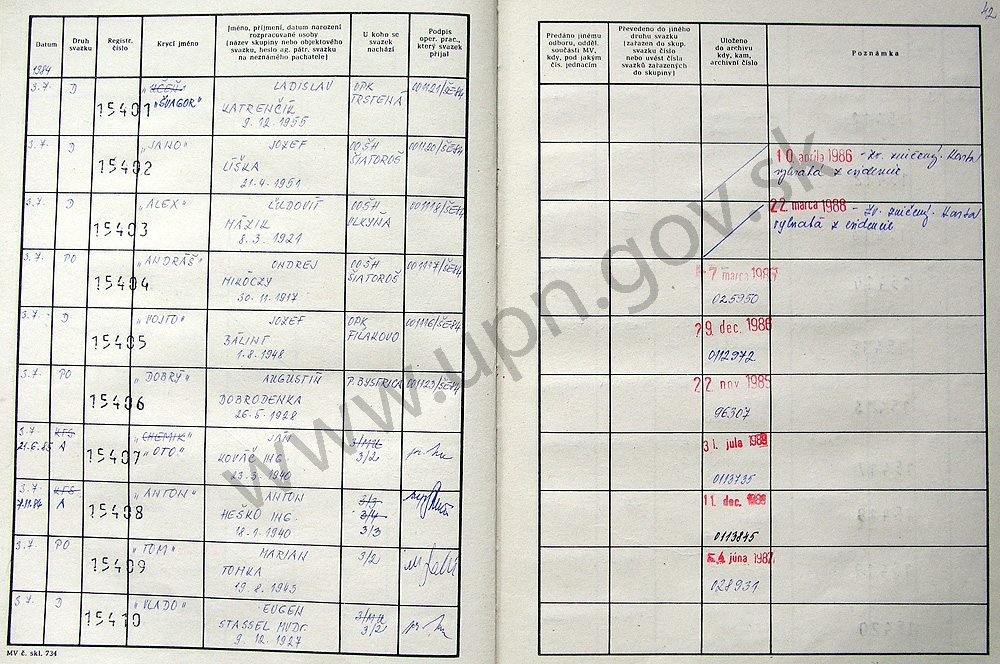 42
Datum
Druh
svazku
Registr.
číslo
Krycí jméno
Jméno, příjmení, datum narození
rozpracované osoby
(název skupiny nebo objektového
svazku, heslo ag. pátr. svazku
na neznámého pachatele)
U koho se
svazek
nachází
Podpis
oper. prac.,
který svazek
přijal
Předáno jinému
odboru, odděl.
součásti MV,
kdy, pod jakým
čís. jednacím
Převedeno do jiného
druhu svazku
(zařazen do skup.
svazku číslo
nebo uvést čísla
svazků zařazených
do skupiny)
Uloženo
do archivu
kdy, kam,
archivní číslo
Poznámka
1984
3.7. D 15401
"ŠVAGOR"
LADISLAV
KATRENČÍK
9.12.1955
OPK
TRSTENÁ
001121/ŠE84
3.7. D 15402
"JANO"
JOZEF
LÍŠKA
21.4.1951
OOŠH
ŠIATOROŠ
001120/ŠE84
10. apríla 1986 - Zv. zničený. Karta
vybratá z evidencie.
3.7. D 15403
"ALEX"
ĽUDOVÍT
MÁZIK
8.3.1921
OOŠH
001118/ŠE84
22. marca 1988 - Zv. zničený. Karta
vybratá z evidencie
3.7. PO 15404
"ANDRÁŠ"
ONDREJ
MIKÓCZY
30.11.1917
OOŠH
ŠIATOROŠ
001117/ŠE84
7 marca 1985
025950
3.7. D 15405
"VOJTO"
JOZEF
BÁLINT
1.8.1948
OPK
FIĽAKOVO
001116/ŠE84
29. dec. 1986
0112972
3.7. PO 15406
"DOBRÝ"
AUGUSTÍN
DOBRODENKA
26.5.1928
P. BYSTRICA
001123/ŠE84
22 nov 1985
96307
3.7. KTS
21.6.85 A 15407
"CHEMIK"
"OTO"
JAN
KOVÁČ ING.
23.3.1940
3/2
31. júla 1989
0113735
3.7. KTS
7.11.84 A 15408
"ANTON"
ANTON
HEŠKO ING.
18.1.1940
3/3
3/4
3/3
11. dec. 1989
0113845
3.7. PO 15409
"TOM"
MARIAN
TOMKA
19.8.1945
3/2
júna 1987
028931
3.7. D 15410
"VLADO"
EUGEN
STASSEL MUDr.
9.12.1927
3/2
MV č. skl. 734
www.upn.gov.sk